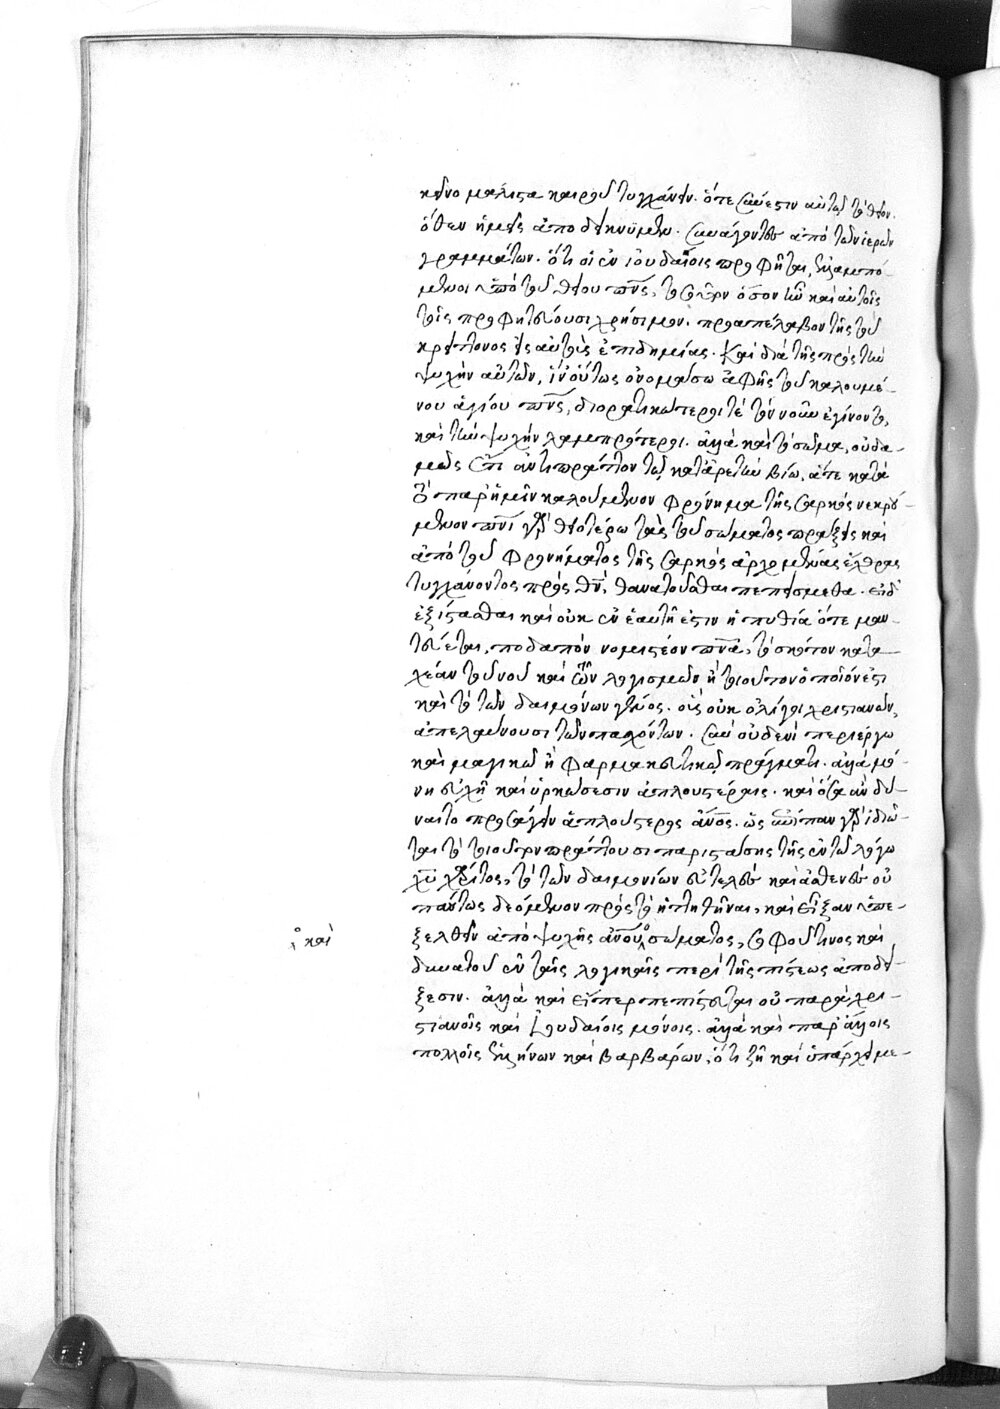 κεῖνο μάλιστα καιροῦ τυγχάνειν. ὅτε σύνεστιν αὐτῷ τὸ θεῖον.
ὅθεν ἡμεῖς ἀποδείκνυμεν. συνάγοντες ἀπὸ τῶν ἱερῶν
γραμμάτων. ὅτι οἱ ἐν ἰουδαίοις προφῆται, ἐλλαμπό-
μενοι ὑπὸ τοῦ θείου πνς, τοσοῦτον ὅσον ἦν καὶ αὐτοῖς
τοῖς προφητεύουσι χρήσιμον. προαπέλαβον τῆς τοῦ
κρείττονος εἰς αὐτοὺς ἐπιδημίας. καὶ διὰ τῆς πρὸς τὴν
ψυχὴν αὐτῶν, ἵν' οὕτως ὀνομάσω ἀφῆς τοῦ καλουμέ-
νου ἁγίου πνς, διορατικώτεροί τε τὸν νοῦν ἐγίνοντο,
καὶ τὴν ψυχὴν λαμπρότεροι. ἀλλὰ καὶ τὸ σῶμα, οὐδα-
μῶς ἔτι ἀντιπράττον τῷ κατ' ἀρετὴν βίῳ, ἅτε κατὰ
τὸ παρ' ἡμῖν καλούμενον φρόνημα τῆς σαρκὸς νεκρού-
μενον πνι γὰρ θειοτέρω τὰς τοῦ σώματος πράξεις καὶ
ἀπὸ τοῦ φρονήματος τῆς σαρκὸς ἀρχομένας ἔχθρας
τυγχάνοντος πρὸς θν, θανατοῦσθαι πεπείσμεθα. εἰ δ'
ἐξίσταται καὶ οὐκ ἐν ἑαυτῇ ἐστιν ἡ πυθία ὅτε μαν-
τεύεται, ποδαπὸν νομιστέον πνα, τὸ σκότον κατα-
χέαν τοῦ νοῦ καὶ τῶν λογισμῶν ἢ τοιοῦτον ὁποῖόν ἐστι
καὶ τὸ τῶν δαιμόνων γένος. οὓς οὐκ ὀλίγοι χριστιανῶν,
ἀπελαύνουσι τῶν πασχόντων. σὺν οὐδενὶ περιέργῳ
καὶ μαγικῷ ἢ φαρμακευτικῷ πράγματι. ἀλλὰ μό-
νῃ εὐχῇ καὶ ὁρκώσεσιν ἁπλουστέραις. καὶ ὅσα ἂν δύ-
ναιτο προσάγειν ἁπλούστερος ἄνος. ὡς ἐπίπαν γὰρ ἰδιῶ-
ται τὸ τοιοῦτον πράττουσι παριστάσης τῆς ἐν τῷ λόγῳ
χυ χάριτος, τὸ τῶν δαιμονίων εὐτελὲς καὶ ἀσθενὲς οὐ
πάντως δεόμενον πρὸς τὸ ἡττηθῆναι, καὶ εἶξαν ὑπε-
ξελθεῖν ἀπὸ ψυχῆς ἀνου σώματος, σοφοῦ τινος καὶ
ἢ καὶ
δυνατοῦ ἐν ταῖς λογικαῖς περὶ τῆς πίστεως ἀποδεί-
ξεσιν. ἀλλὰ καὶ εἴπερ πεπίστευται οὐ παρὰ χρι-
στιανοῖς καὶ ἰουδαίοις μόνοις. ἀλλὰ καὶ παρ' ἄλλοις
πολλοῖς ἑλλήνων καὶ βαρβάρων. ὅτι ζῇ καὶ ὑπάρχει με-